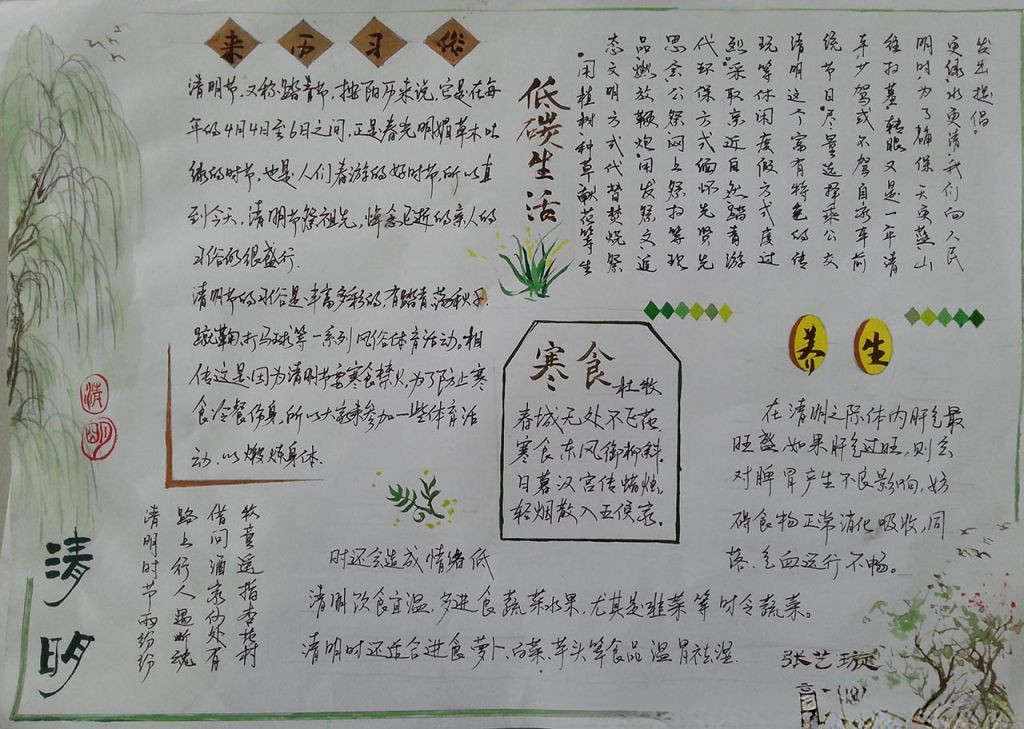 来历习俗
清明节,又称踏青节,按阳历来说,它是在每
年的4月4日至6日之间,正是春光明媚草木吐
绿的时节,也是人们春游的好时节,所以直
到今天,清明节祭祖先,悼念已逝的亲人的
习俗仍很盛行.
清明节的习俗是丰富多彩的,有踏青、荡秋千、
蹴鞠、打马球等一系列风俗体育活动。相
传这是因为清明节要寒食禁火,为了防止寒
食冷餐伤身,所以大家来参加一些体育活
动,以锻炼身体.
低碳生活
发出提倡:
更绿水更清,我们向人民
明时,为了确保天更蓝山
维扫墓,转眼又是一年清
车少驾或不驾自家车前
统节日,尽量选择乘公交
清明这个富有特色的传
玩等休闲度假方式度过
烈,采取亲近自然踏青游
代环保方式缅怀先贤先
思念公祭网上祭扫等现
品燃放鞭炮,用发祭文追
态文明方式代替焚烧祭
用植树种草献花等生
寒食
杜牧
春城无处不飞花
寒食东风御柳斜.
日暮汉宫传蜡烛,
轻烟散入五侯家.
养生
在清明之际体内肝气最
旺盛,如果肝气过旺,则会
对脾胃产生不良影响,妨
碍食物正常消化吸收,同
时还会造成情绪低
落、气血运行不畅。
清明饮食宜温,多进食蔬菜水果,尤其是韭菜等时令蔬菜。
清明时还适合进食萝卜、白菜、芋头等食品,温胃祛湿.
清明
清明
清明时节雨纷纷
路上行人欲断魂
借问酒家何处有
牧童遥指杏花村
张艺璇